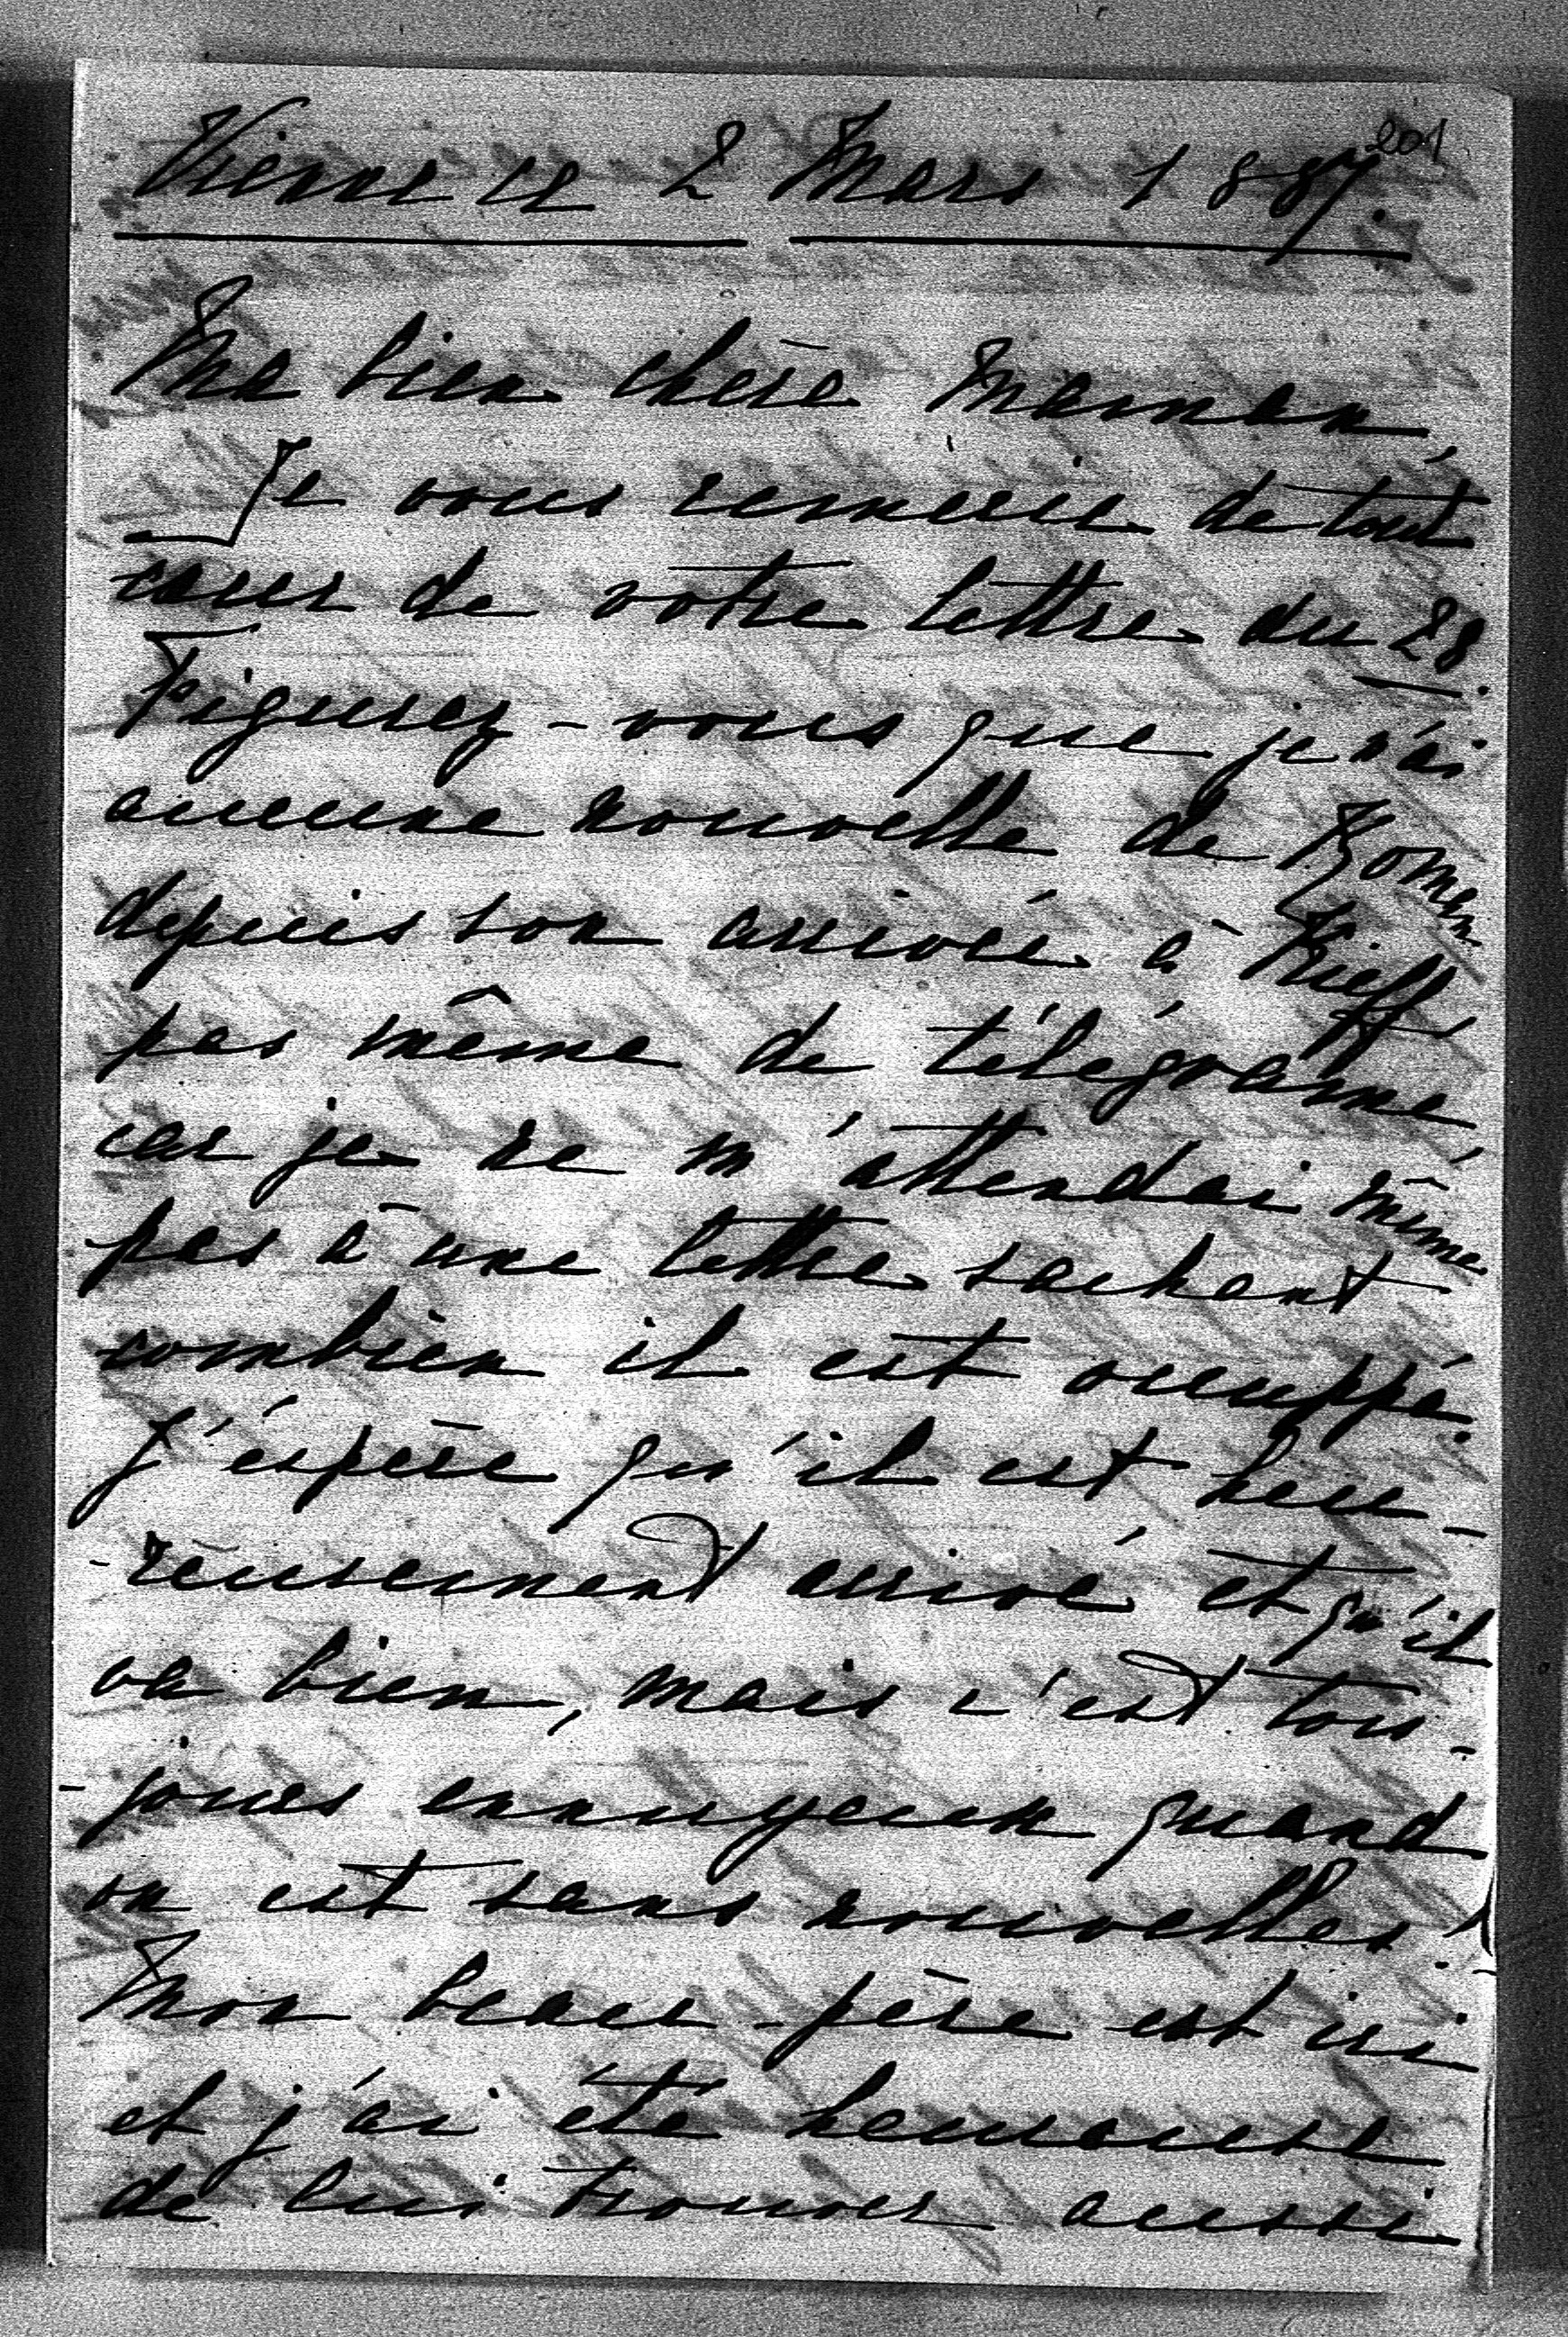 201
Vienne ce 2 Mars 1887.
Ma bien chère Maman,
Je vous remercie de tout
coeur de votre lettre du 28.
Figurez-vous que je n'ai
aucune nouvelle de Roman
depuis son arrivée à Kieff
pas même de télégrame,
car je ne m'attendai même
pas à une lettre sachant
combien il est occuppé.
J'éspère qu'il est heu-
-reusement arrivé et qu'il
va bien, mais c'est tou-
-jours ennuyeux quand
on est sans nouvelles.
Mon beau-père est ici
et j'ai été heureuse
de lui trouver aussi